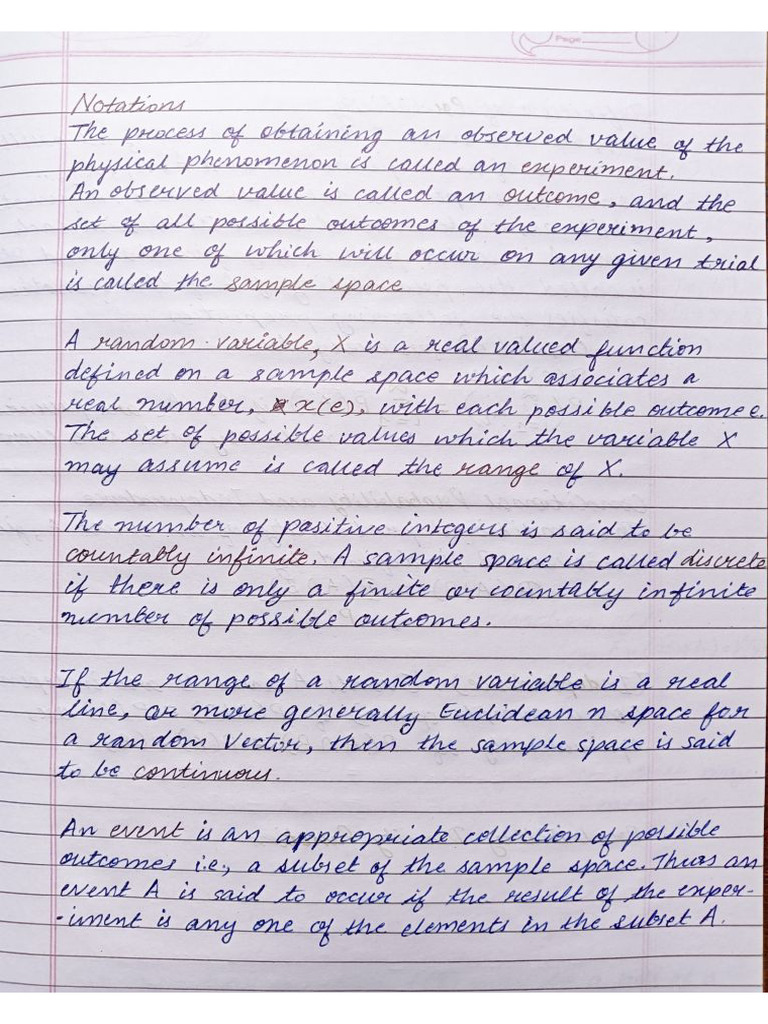 Notations
The process of obtaining an observed value of the
physical phenomenon is called an experiment.
An observed value is called an outcome, and the
set of all possible outcomes of the experiment,
only one of which will occur on any given trial
is called the sample space
A random variable, X is a real valued function
defined on a sample space which associates a
real number, x(e), with each possible outcome e.
The set of possible values which the variable X
may assume is called the range of X.
The number of positive integers is said to be
countably infinite. A sample space is called discrete
if there is only a finite or countably infinite
number of possible outcomes.
If the range of a random variable is a real
line, or more generally Euclidean n space for
a random Vector, then the sample space is said
to be continuous.
An event is an appropriate collection of possible
outcomes i.e., a subset of the sample space. Thus an
event A is said to occur if the result of the exper-
-iment is any one of the elements in the subset A.